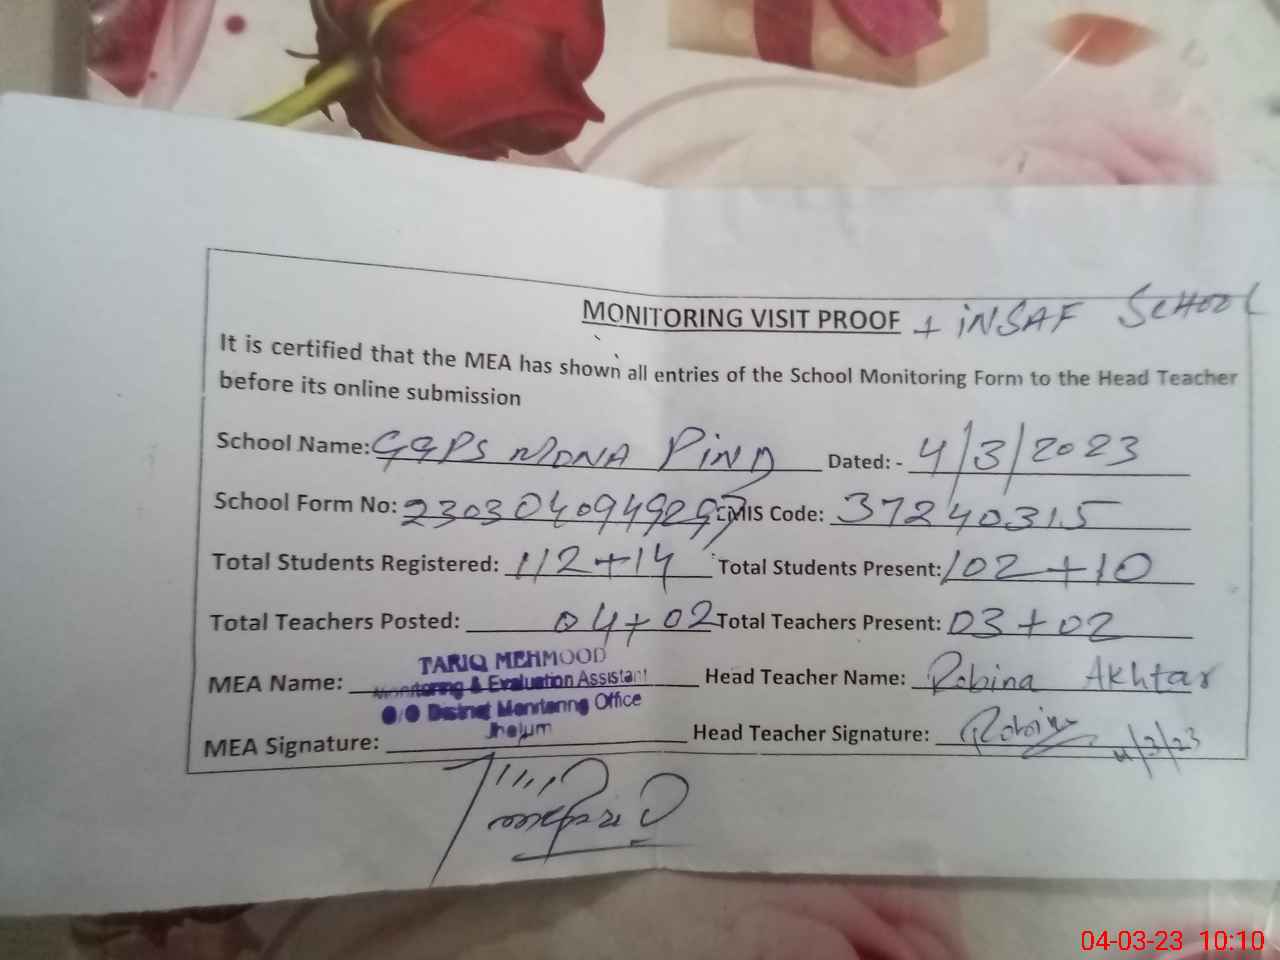 MONITORING VISIT PROOF + iNSAF SCHOOL
It is certified that the MEA has shown all entries of the School Monitoring Form to the Head Teacher
before its online submission
School Name: GGPS MONA PIND Dated: - 4/3/2023
School Form No: 2303040949297 EMIS Code: 37240315
Total Students Registered: 112+14 Total Students Present: 102+10
Total Teachers Posted: 04+02 Total Teachers Present: 03+02
MEA Name: TARIQ MEHMOOD
Monitoring & Evaluation Assistant
O/O District Monitoring Office
Jhelum
Head Teacher Name: Robina Akhtar
MEA Signature: Head Teacher Signature: Robina 4/3/23
04-03-23 10:10